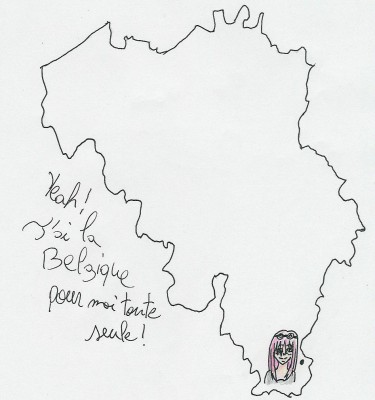 Yeah!
J'ai la
Belgique
pour moi toute
seule!